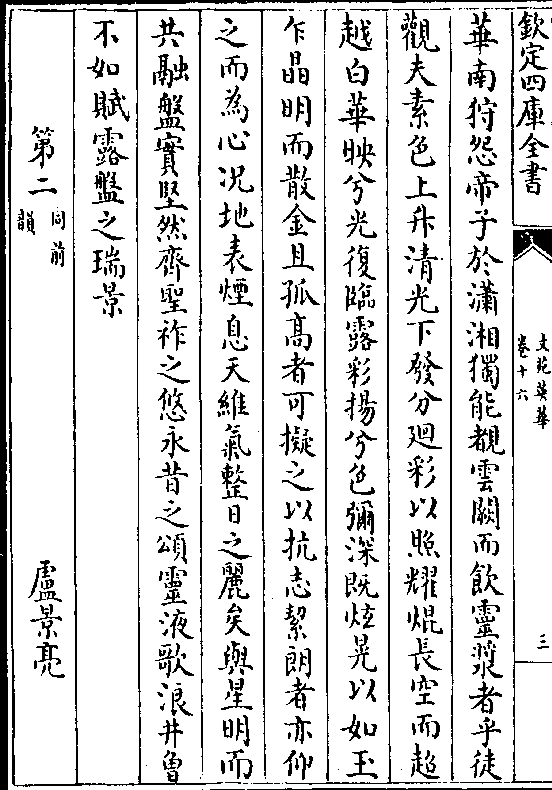 欽定四庫全書
文苑英華
卷十六
三
華南狩怨帝子於瀟湘獨能覩雲闕而飲靈漿者乎徒
觀夫素色上升清光下發分迴彩以照耀焜長空而超
越白華映兮光復臨露彩揚兮色彌深既炫晃以如玉
乍晶明而散金且孤髙者可擬之以抗志絜朗者亦仰
之而為心况地表煙息天維氣整日之麗矣與星明而
共融盤實堅然齊聖祚之悠永昔之頌靈液歌浪井曽
不如賦露盤之瑞景
第二 同前韻 盧景亮